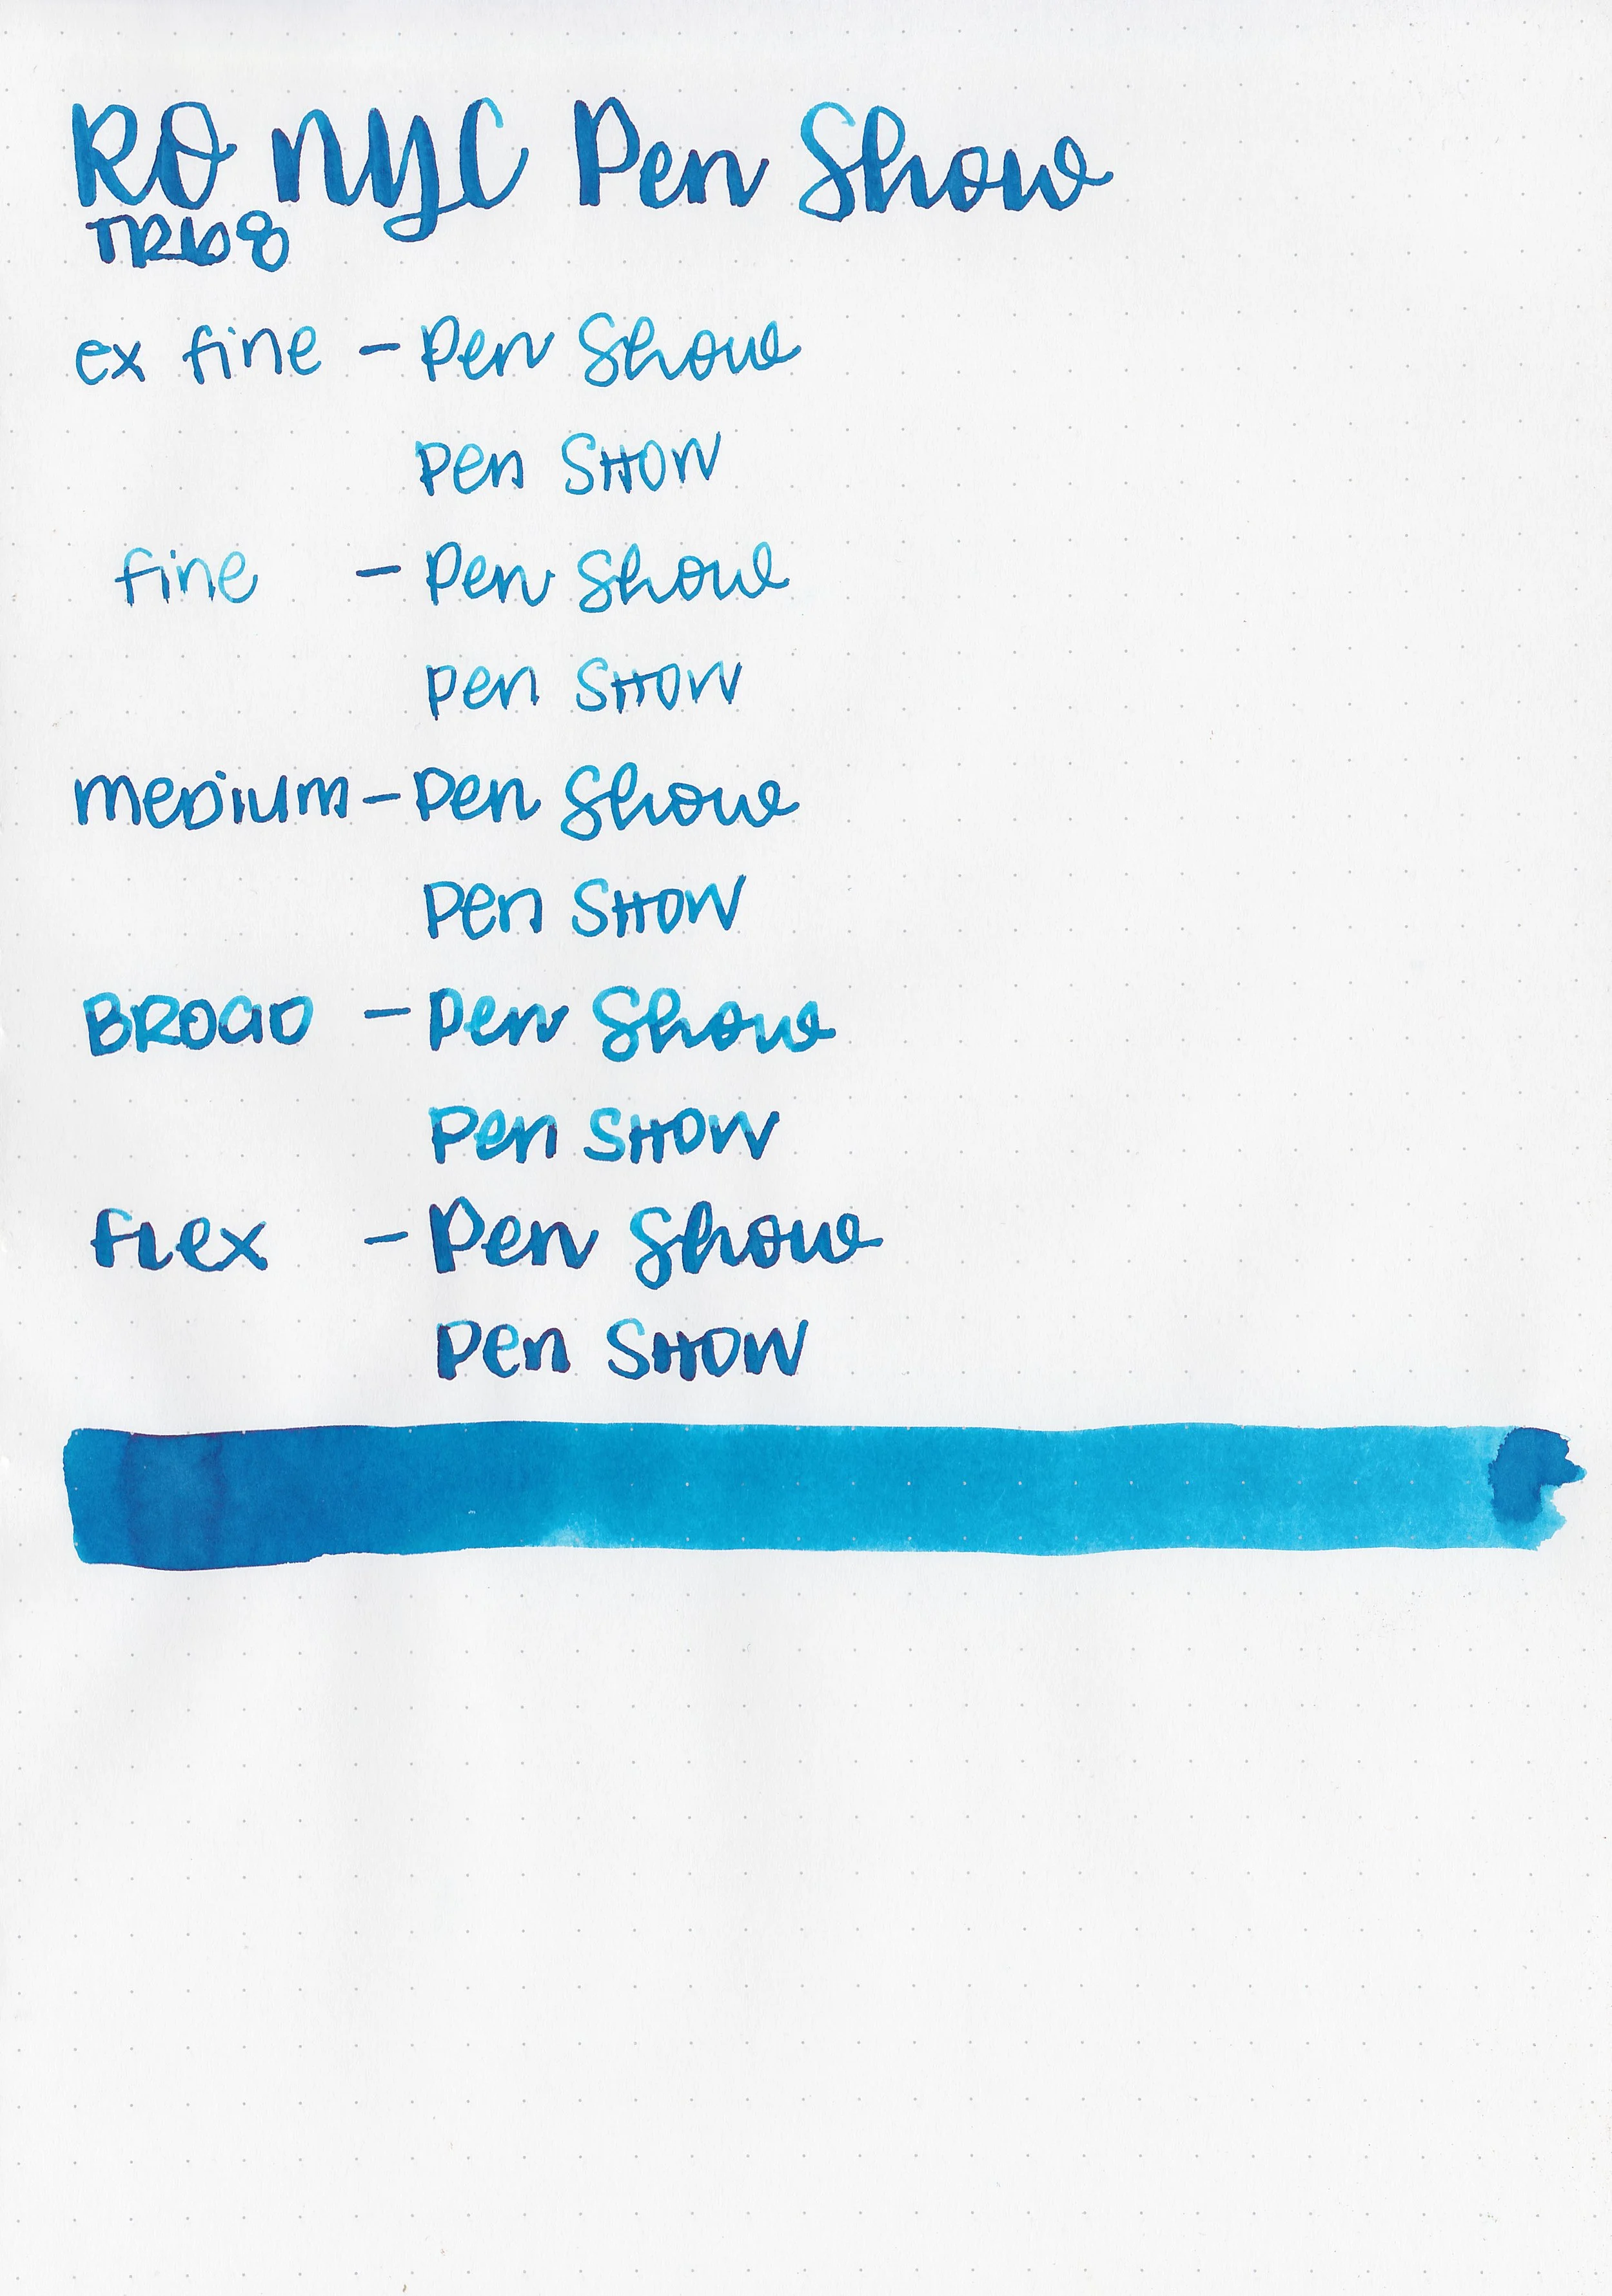 RO NYC Pen Show
TR68
ex fine - Pen Show
Pen SHOW
fine - Pen Show
Pen SHOW
meDium - Pen Show
Pen SHOW
BROaD - Pen Show
Pen SHOW
fLex - Pen Show
Pen SHOW